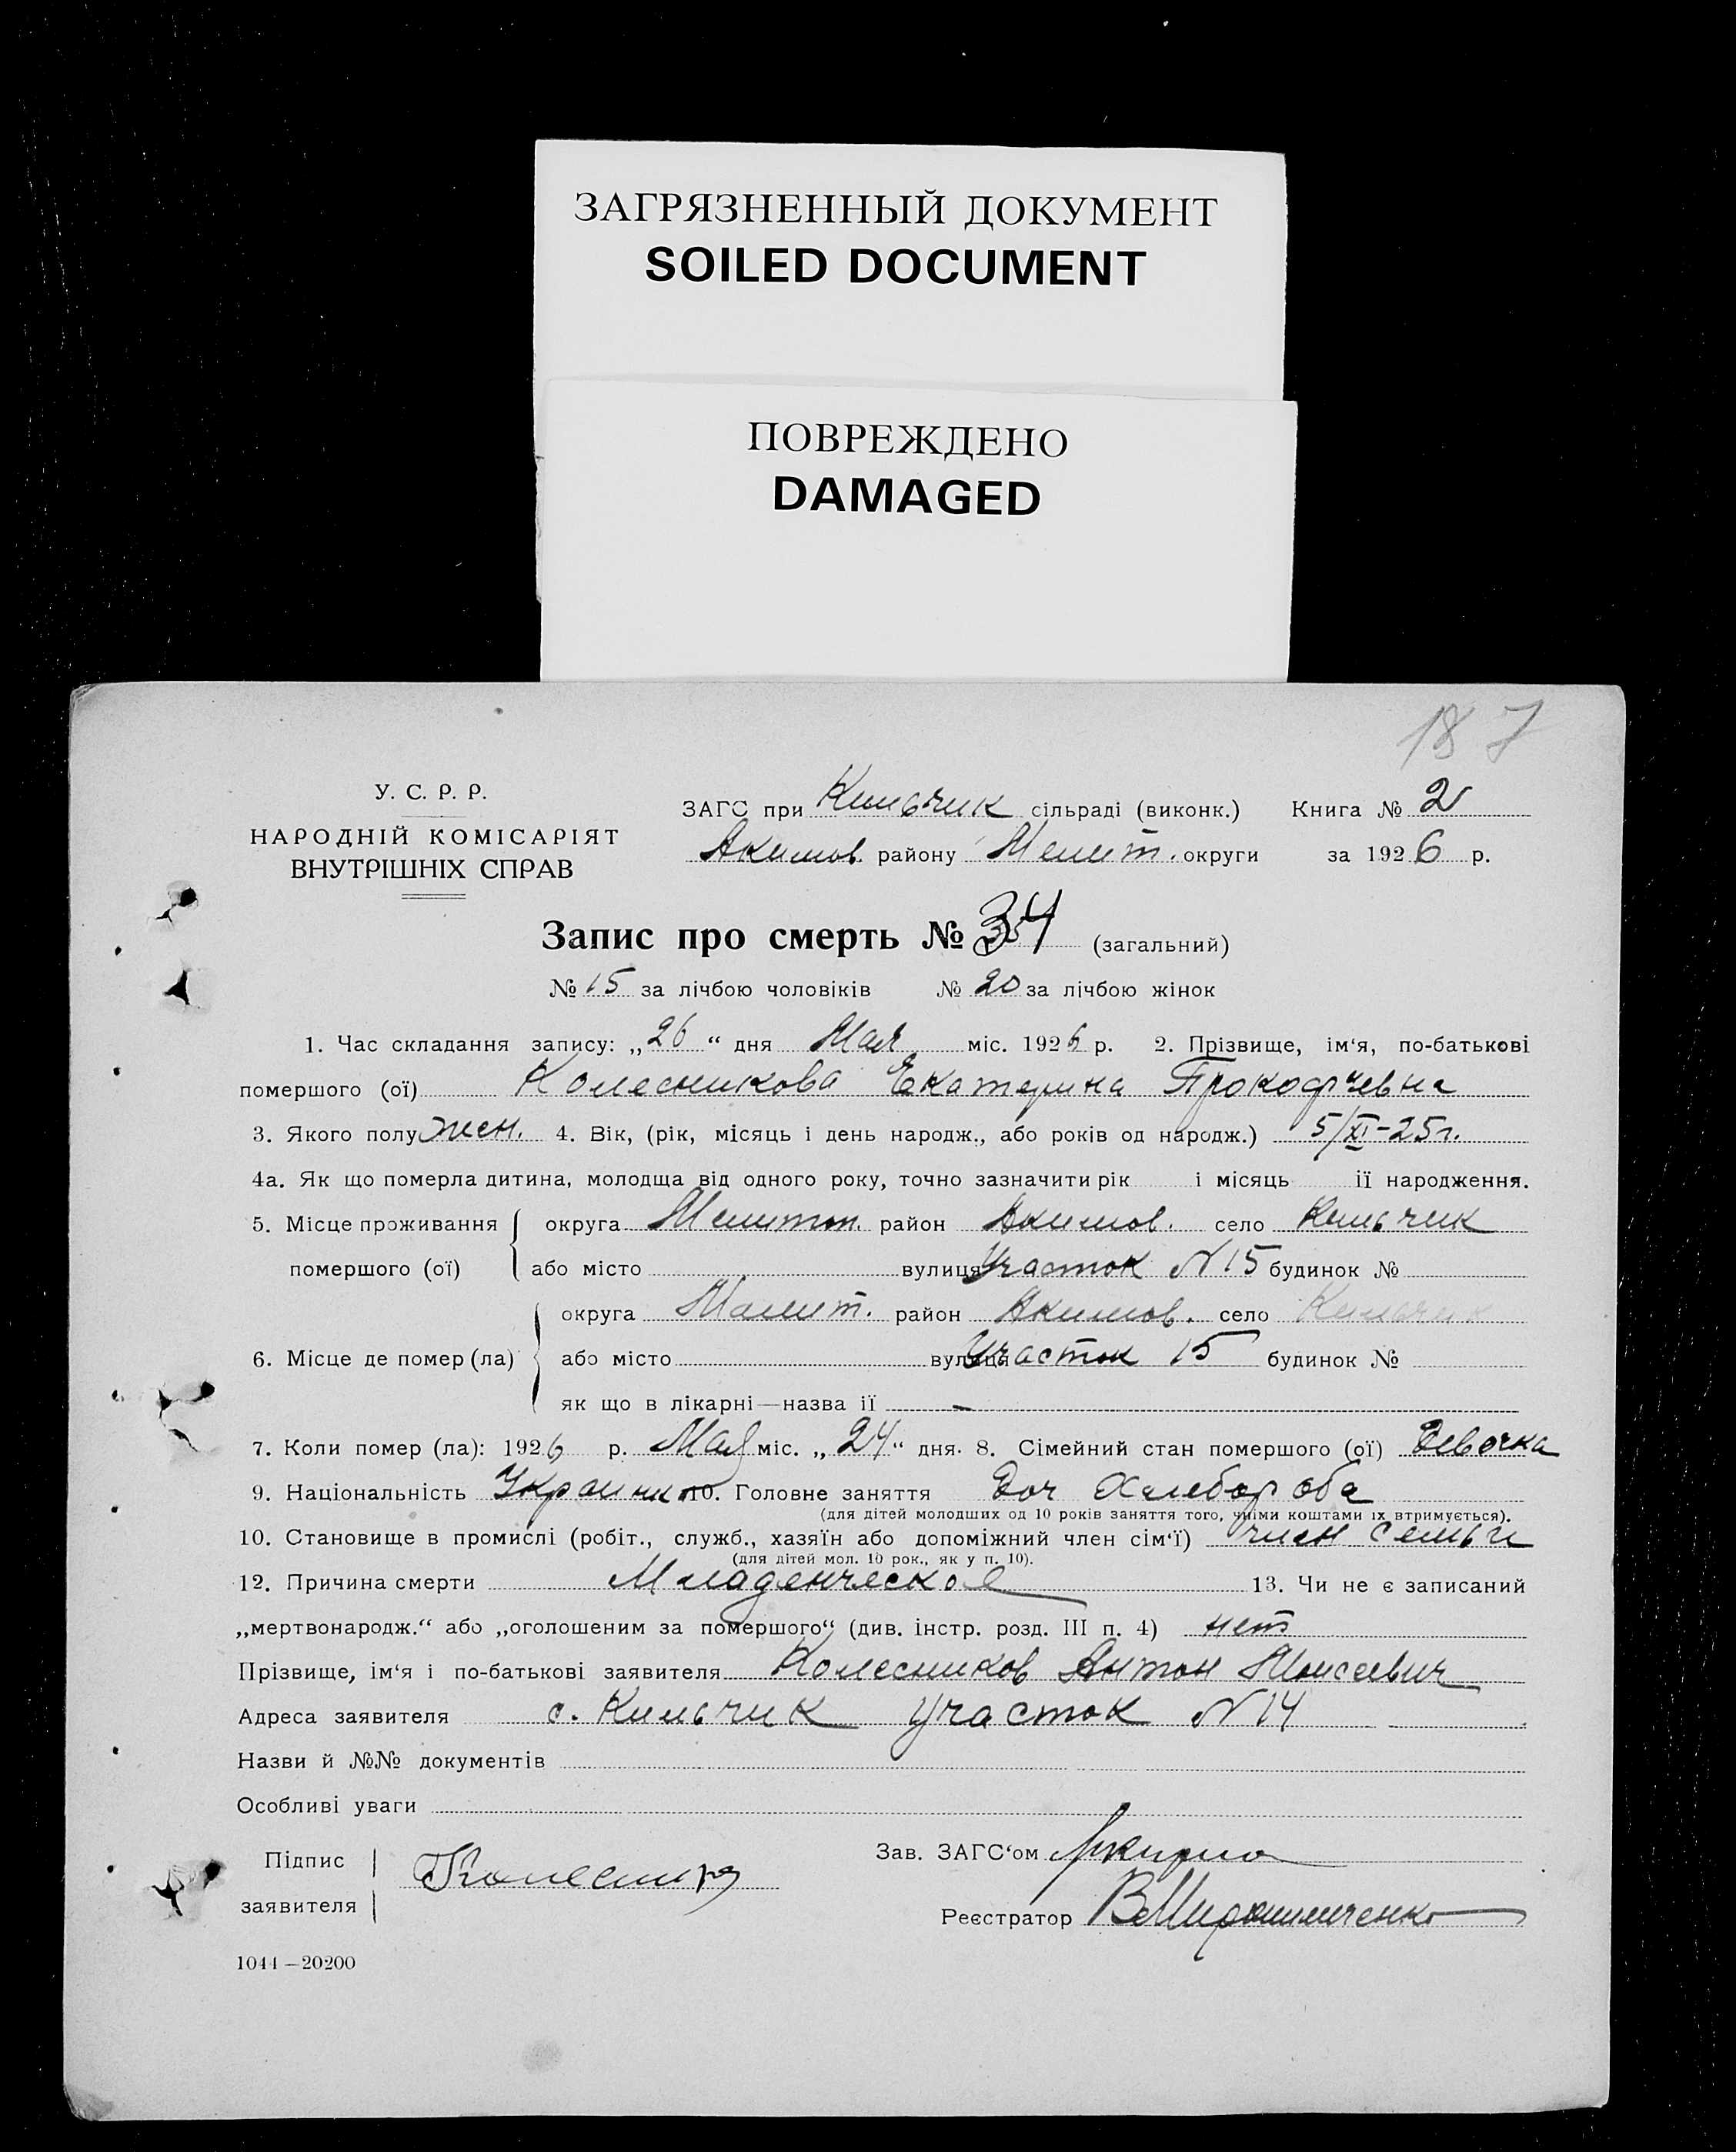 ЗАГРЯЗНЕННЫЙ ДОКУМЕНТ
SOILED DOCUMENT
ПОВРЕЖДЕНО
DAMAGED
187
У. С. Р. Р.
НАРОДНІЙ КОМІСАРІЯТ
ВНУТРІШНІХ СПРАВ
ЗАГС при Кильчик сільраді (виконк.) Книга № 2
Акимов. району Мелит. округи за 1926 р.
Запис про смерть № 34 (загальний)
№ 15 за лічбою чоловіків № 20 за лічбою жінок
1. Час складання запису: „26“ дня Мая міс. 1926 р. 2. Прізвище, ім‘я, по-батькові
помершого (ої) Колесникова Екатерина Прокофчевна
3. Якого полу жен. 4. Вік, (рік, місяць і день народж., або років од народж.) 5/XI-25г.
4а. Як що померла дитина, молодща від одного року, точно зазначити рік і місяць її народження.
5. Місце проживання округа Мелитоп. район Акимов. село Кильчик
помершого (ої) або місто вулиця Участок N15 будинок №
округа Мелит. район Акимов. село Кильчик
6. Місце де помер (ла) або місто вулиця Участок 15 будинок №
як що в лікарні—назва її –
7. Коли помер (ла): 1926 р. Мая міс. „24“ дня. 8. Сімейний стан помершого (ої) Девочка
9. Національність 10. Головне заняття Доч Хлебороба
(для дітей молодших од 10 років заняття того, чиїми коштами їх втримується).
10. Становище в промислі (робіт., служб., хазяїн або допоміжний член сім‘ї) член семьи
(для дітей мол. 10 рок., як у п. 10).
12. Причина смерти Младенческое 13. Чи не є записаний
„мертвонародж.“ або „оголошеним за помершого“ (див. інстр. розд. III п. 4) нет
Прізвище, ім‘я і по-батькові заявителя Колесников Антон Моисеевич
Адреса заявителя с. Кильчик участок N14
Назви й №№ документів
Особливі уваги
Підпис
заявителя
Зав. ЗАГС‘ом
Реєстратор ВМирошниченко
1044—20200